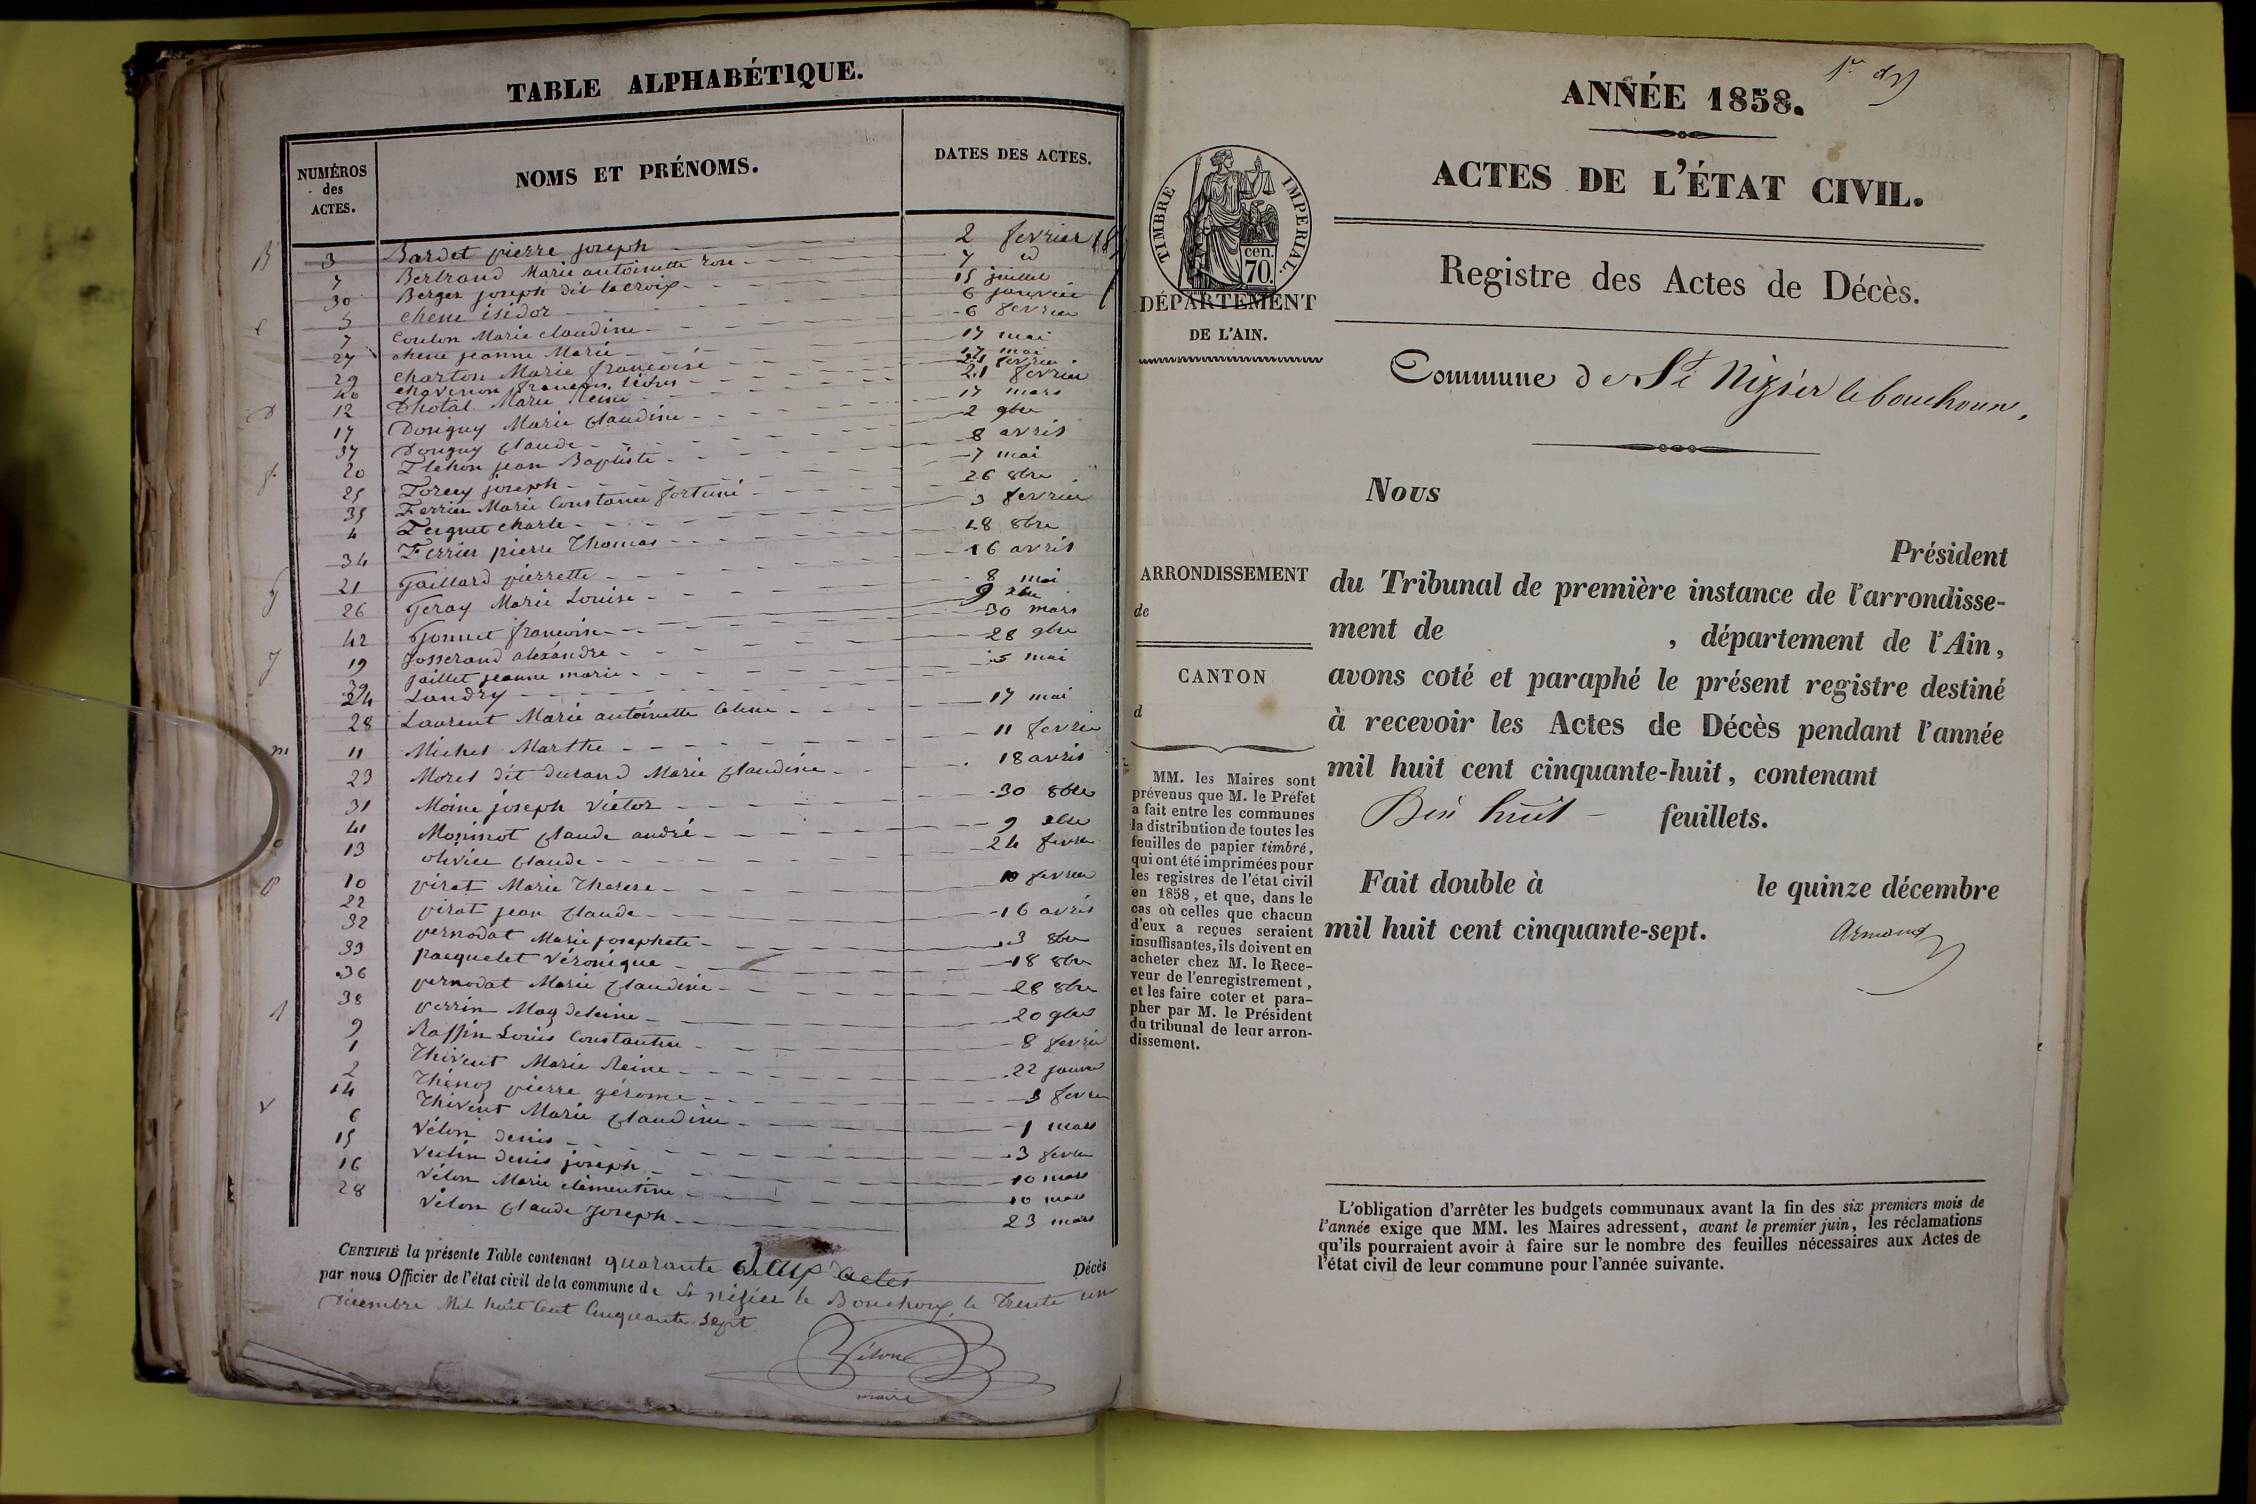 TABLE ALPHABÉTIQUE.
NUMÉROS
des
ACTES.
NOMS ET PRÉNOMS.
DATES DES ACTES.
B 3 Bardet pierre joseph 2 fevrier
7 Bertrand Marie antoinette rose 7 d
30 Berger joseph dit lacroix 15 juillet
5 chene isidor 6 janvier
c 7 Coulon Marie claudine 6 fevrier
27 chene jeanne Marie 17 mai
29 charton Marie françoise 17 mai
40 chavenon françois 21 fevrier
D 12 Thotal Marie Reine 21 fevrier
17 Dorigny Marie Claudine 17 mars
37 Dorigny Claude 2 9bre
f 20 Flehon jean Baptiste 8 avril
25 Foray joseph 7 mai
35 Ferrier Marie Constance fortuné 26 8bre
4 Feignet charle 3 fevrier
34 Ferrier pierre Thomas 18 8bre
g 21 Gaillard pierrette 16 avril
26 Geray Marie Louise 8 mai
42 Gonnet françoise 9 xbre
J 19 Josserand alexandre 30 mars
39 Jaillet jeanne marie 28 9bre
24 Landry 5 mai
28 Laurent Marie antoinette 17 mai
m 11 Michel Marthe 11 fevrier
23 Morel dit durand Marie Claudine 18 avril
31 Moine joseph victor 30 8bre
41 Moninot Claude andré 9 xbre
o 13 olivier Claude 24 fevrier
p 10 pirat Marie Therese 10 fevrier
22 pirat jean Claude 16 avril
32 pernodat Marie josephete 3 8bre
33 pacquelet véronique 18 8bre
36 pernodat Marie Claudine 28 8bre
38 perrin Magdeleine 20 9bre
9 Raffin Louis Constantin 8 fevrier
1 Thivent Marie Reine 22 janvier
2 Thénoz pierre gérome 3 fevrier
14 Thivent Marie Claudine 1 mars
v 6 Vélon denis 3 fevrier
15 Vulin denis joseph 10 mars
16 Vélon Marie clémentine 10 mars
28 Vélon Claude Joseph 23 mars
CERTIFIÉ la présente Table contenant quarante deux actes Décès
par nous Officier de l'état civil de la commune de St nizier le Bouchoux, le Trente un
Décembre Mil huit Cent Cinquante Sept
Vélon
maire
ANNÉE 1858.
ACTES DE L'ÉTAT CIVIL.
TIMBRE IMPERIAL.
cen.
70.
Registre des Actes de Décès.
DÉPARTEMENT
DE L'AIN.
Commune de St Nizier le bouchoux,
Nous
Président
ARRONDISSEMENT
de
CANTON
d
du Tribunal de première instance de l'arrondisse-
ment de , département de l'Ain,
avons coté et paraphé le présent registre destiné
à recevoir les Actes de Décès pendant l'année
mil huit cent cinquante-huit, contenant
Dix huit feuillets.
Fait double à le quinze décembre
mil huit cent cinquante-sept.
Armand
MM. les Maires sont
prévenus que M. le Préfet
a fait entre les communes
la distribution de toutes les
feuilles de papier timbré,
qui ont été imprimées pour
les registres de l'état civil
en 1858, et que, dans le
cas où celles que chacun
d'eux a reçues seraient
insuffisantes, ils doivent en
acheter chez M. le Rece-
veur de l'enregistrement,
et les faire coter et para-
pher par M. le Président
du tribunal de leur arron-
dissement.
L'obligation d'arrêter les budgets communaux avant la fin des six premiers mois de
l'année exige que MM. les Maires adressent, avant le premier juin, les réclamations
qu'ils pourraient avoir à faire sur le nombre des feuilles nécessaires aux Actes de
l'état civil de leur commune pour l'année suivante.